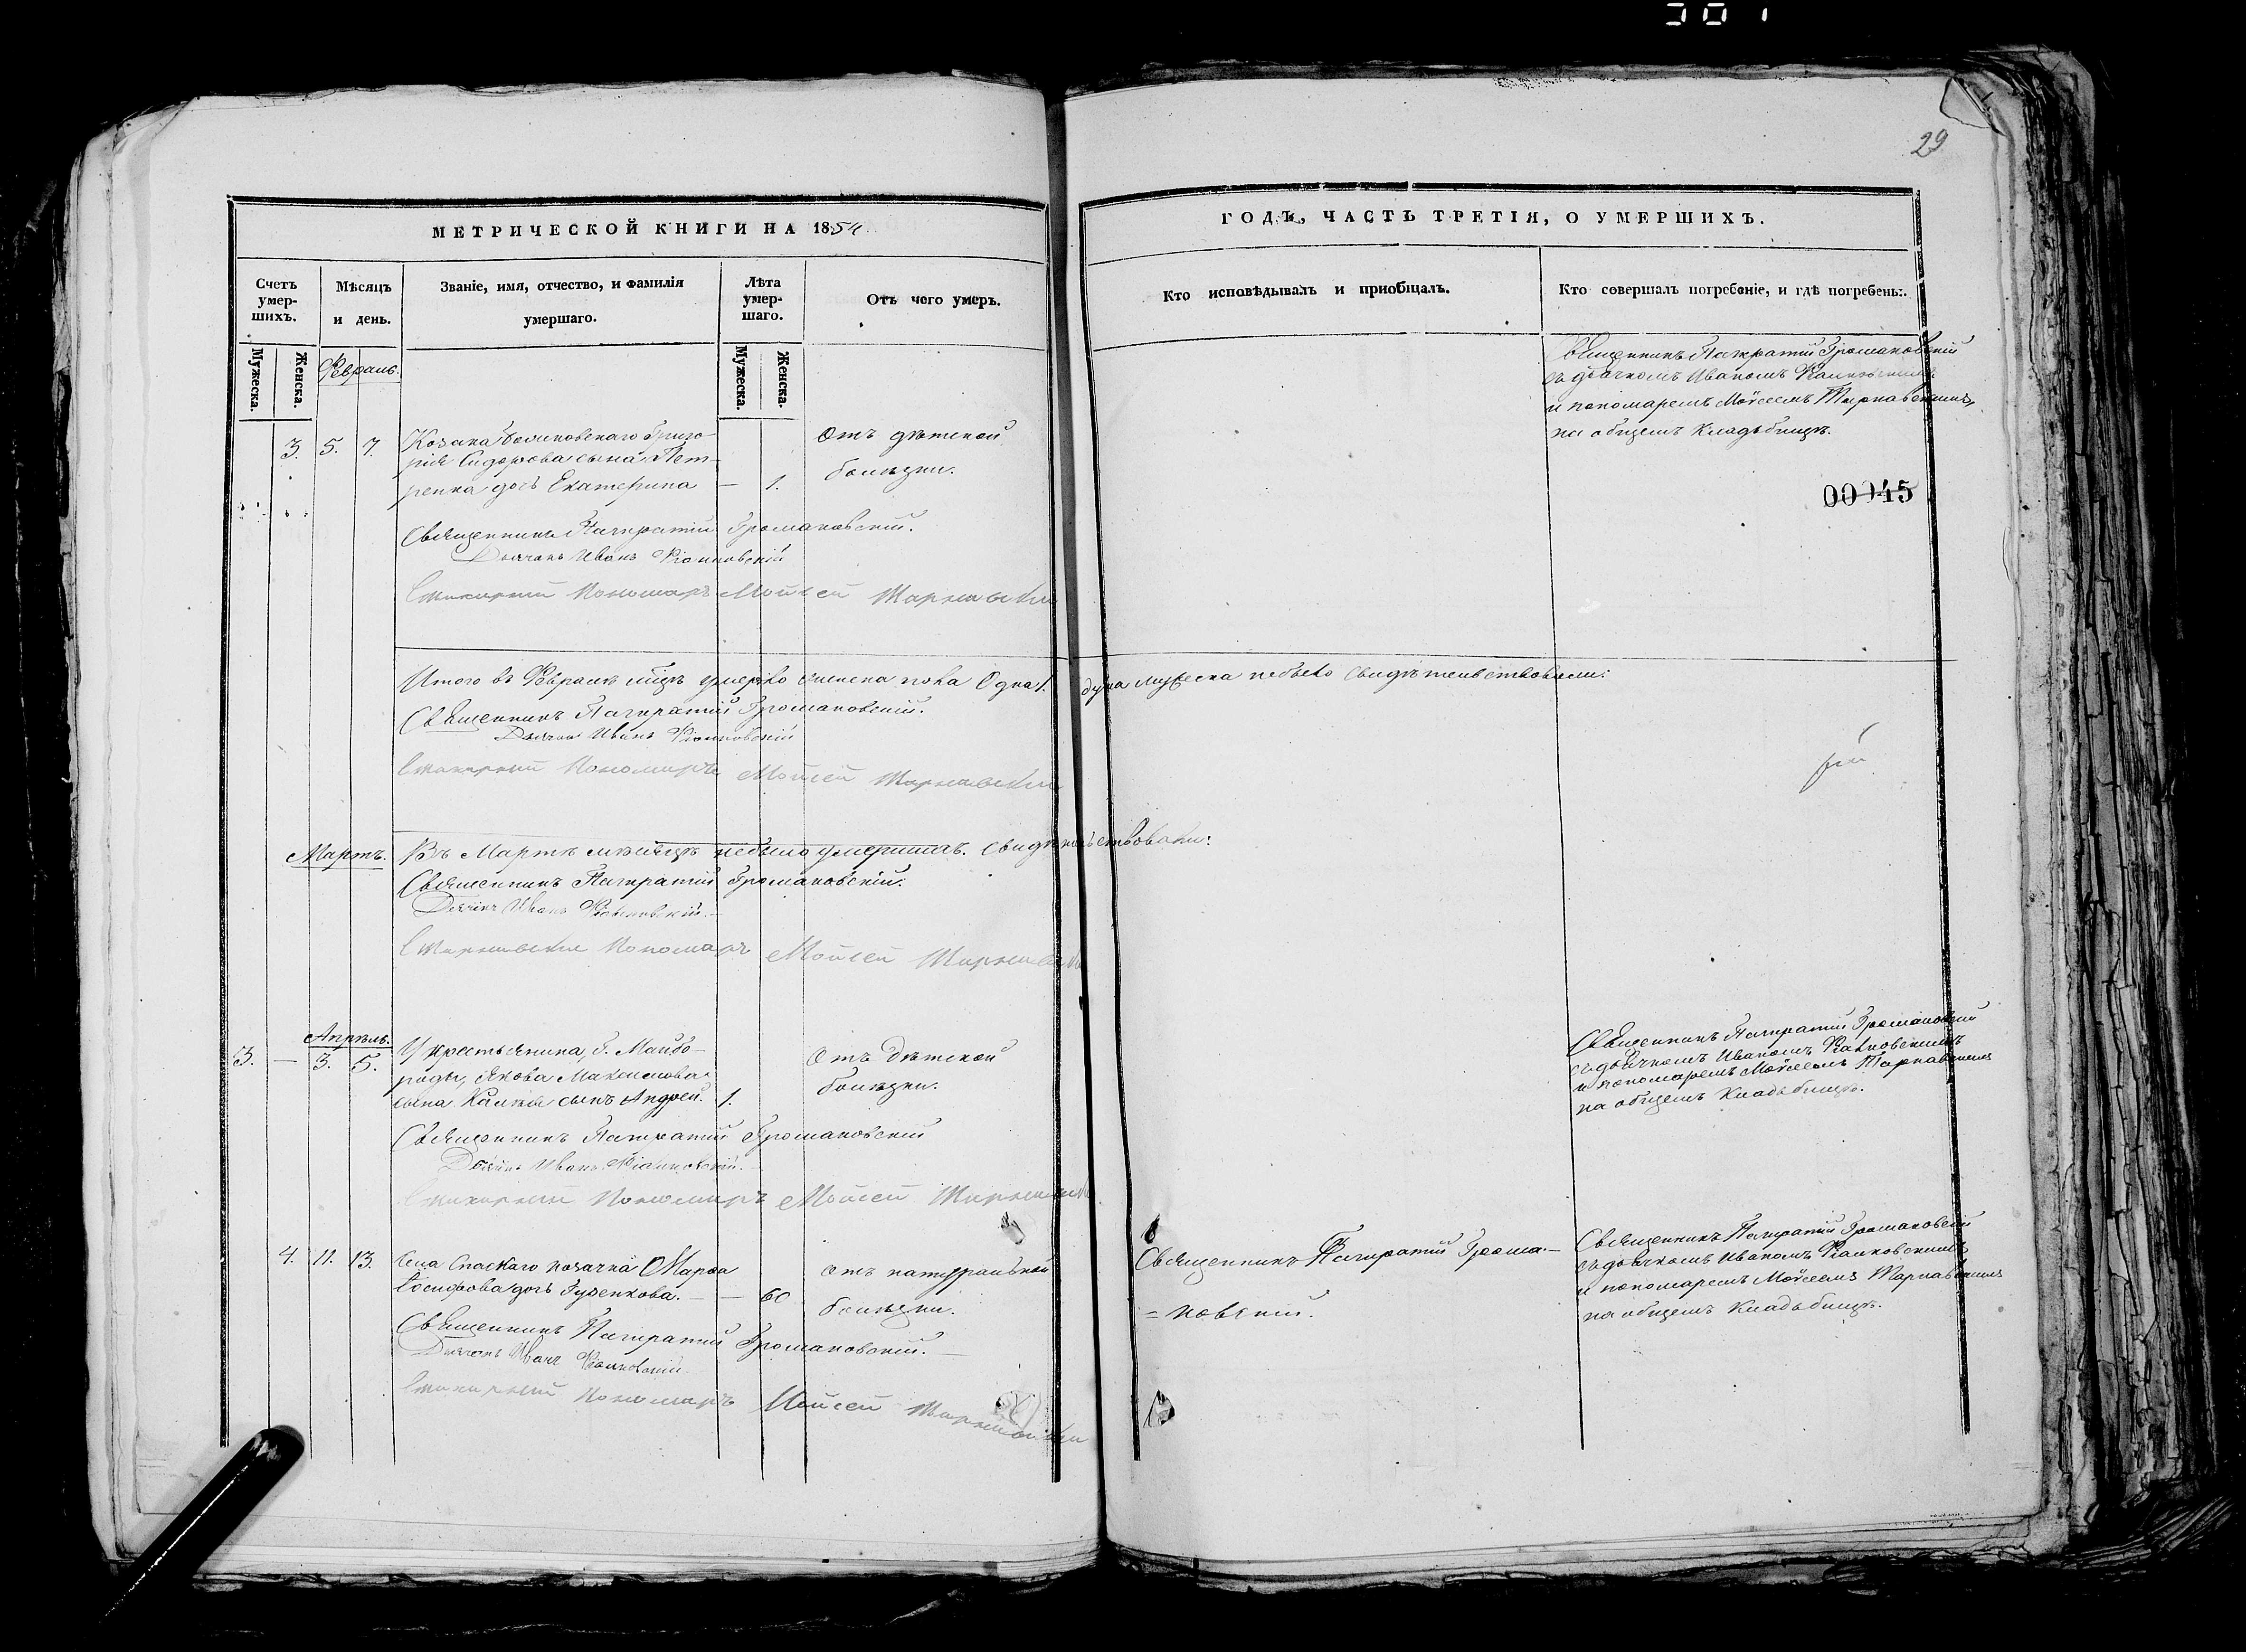 29
МЕТРИЧЕСКОЙ КНИГИ НА 1854
ГОДЪ, ЧАСТЬ ТРЕТІЯ, О УМЕРШИХЪ.
Счетъ умер-шихъ.
Мѣсяцъ и день.
Званіе, имя, отчество, и фамилія
умершаго.
Лѣта умер-шаго.
Отъ чего умеръ.
Кто исповѣдывалъ и пріобщалъ.
Кто совершалъ погребеніе, и гдѣ погребены.
Мужеска.
Женска.
Мужеска.
Женска.
Февраль.
3. 5. 7.
Козака Григо-
рія Сидорова сына Пет-
ренка дочь Екатерина — 1.
Отъ дѣтской
болѣзни.
Священникъ Панкратій Громаковскій
съ дьячкомъ Иваномъ
и пономаремъ Моѵсеемъ Тарнавскимъ,
на общемъ кладьбищѣ.
00045
Священникъ Панкратій Громаковскій.
Дьячокъ Иванъ
Пономаръ Мойсей Тарнавскій
Итого въ Февралѣ мѣсцѣ умерло женска пола Одна 1. душа мужеска небыло свидѣтельствовали:
Священникъ Панкратій Громаковскій.
Дьячокъ Иванъ
Пономаръ Мойсей Тарнавскій
Мартъ.
Въ Мартѣ мѣсяцѣ небыло умершихъ. свидѣтельствовали:
Священникъ Панкратій Громаковскій.
Дьячокъ Иванъ
Пономаръ Мойсей Тарнавскій
Апрѣль.
3. — 3. 5.
У крестьянина, Г. Майбо-
роды, Якова Максимова
сына сынъ Андрей. 1.
Отъ Дѣтской
болѣзни.
Священникъ Панкратій Громаковскій
съ дьячкомъ Иваномъ
и пономаремъ Моѵсеемъ Тарнавскимъ
на общемъ кладьбищѣ.
Священникъ Панкратій Громаковскій
Дьячокъ Иванъ
Пономаръ Мойсей Тарнавскій
4. 11. 13.
Села Спаскаго козачка Марѳа
Іосифова дочь Гуденкова. — — 60
Отъ натуральной
болѣзни.
Священникъ Панкратій Грома-
=ковскій.
Священникъ Панкратій Громаковскій
съ дьячкомъ Иваномъ
и пономаремъ Моѵсеемъ Тарнавскимъ
на общемъ кладьбищѣ.
Священникъ Панкратій Громаковскій.
Дьячокъ Иванъ
Пономаръ Мойсей Тарнавскій